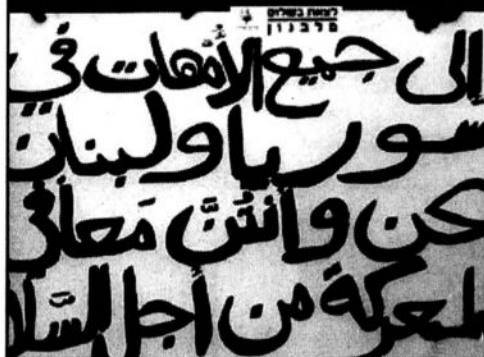 לצאת בשלום
מלבנון
إلى جميع الأمّهات في
سوريا ولبنان
نحن وأنتنَّ مَعاً في
المعركة من أجل السَّلا